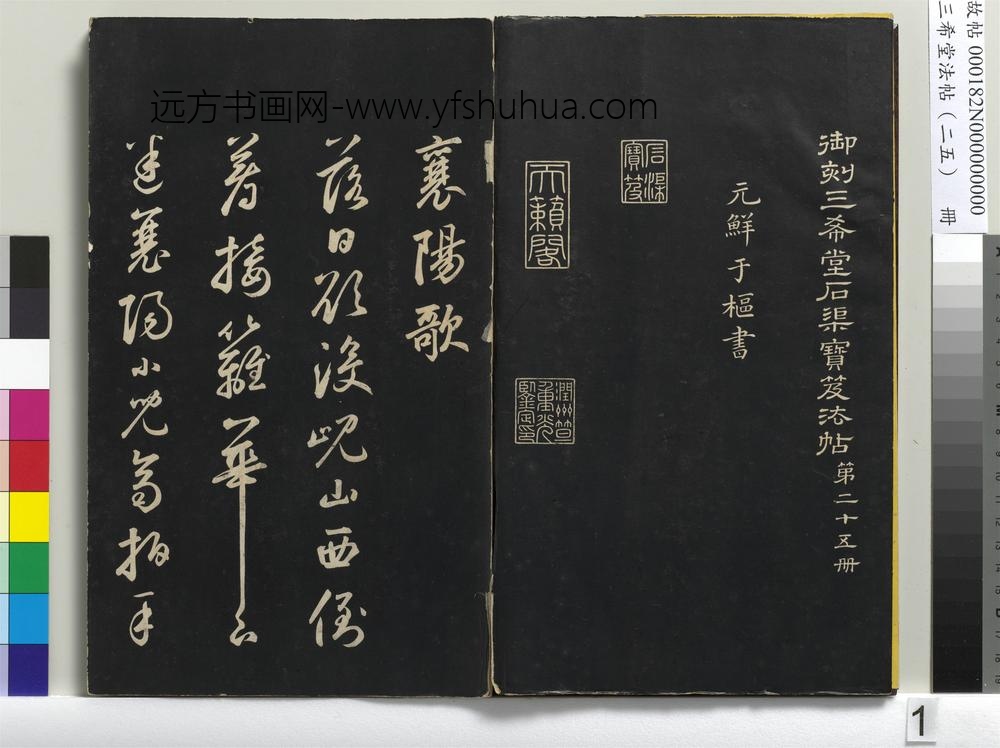 远方书画网-www.yfshuhua.com
故帖 000182N000000000
三希堂法帖（二五） 冊
御刻三希堂石渠寶笈法帖 第二十五册
元鮮于樞書
石渠寶笈
天籟閣
襄陽歌
落日欲沒峴山西倒
著接䍦華下
迷襄陽小兒齊拍手
1